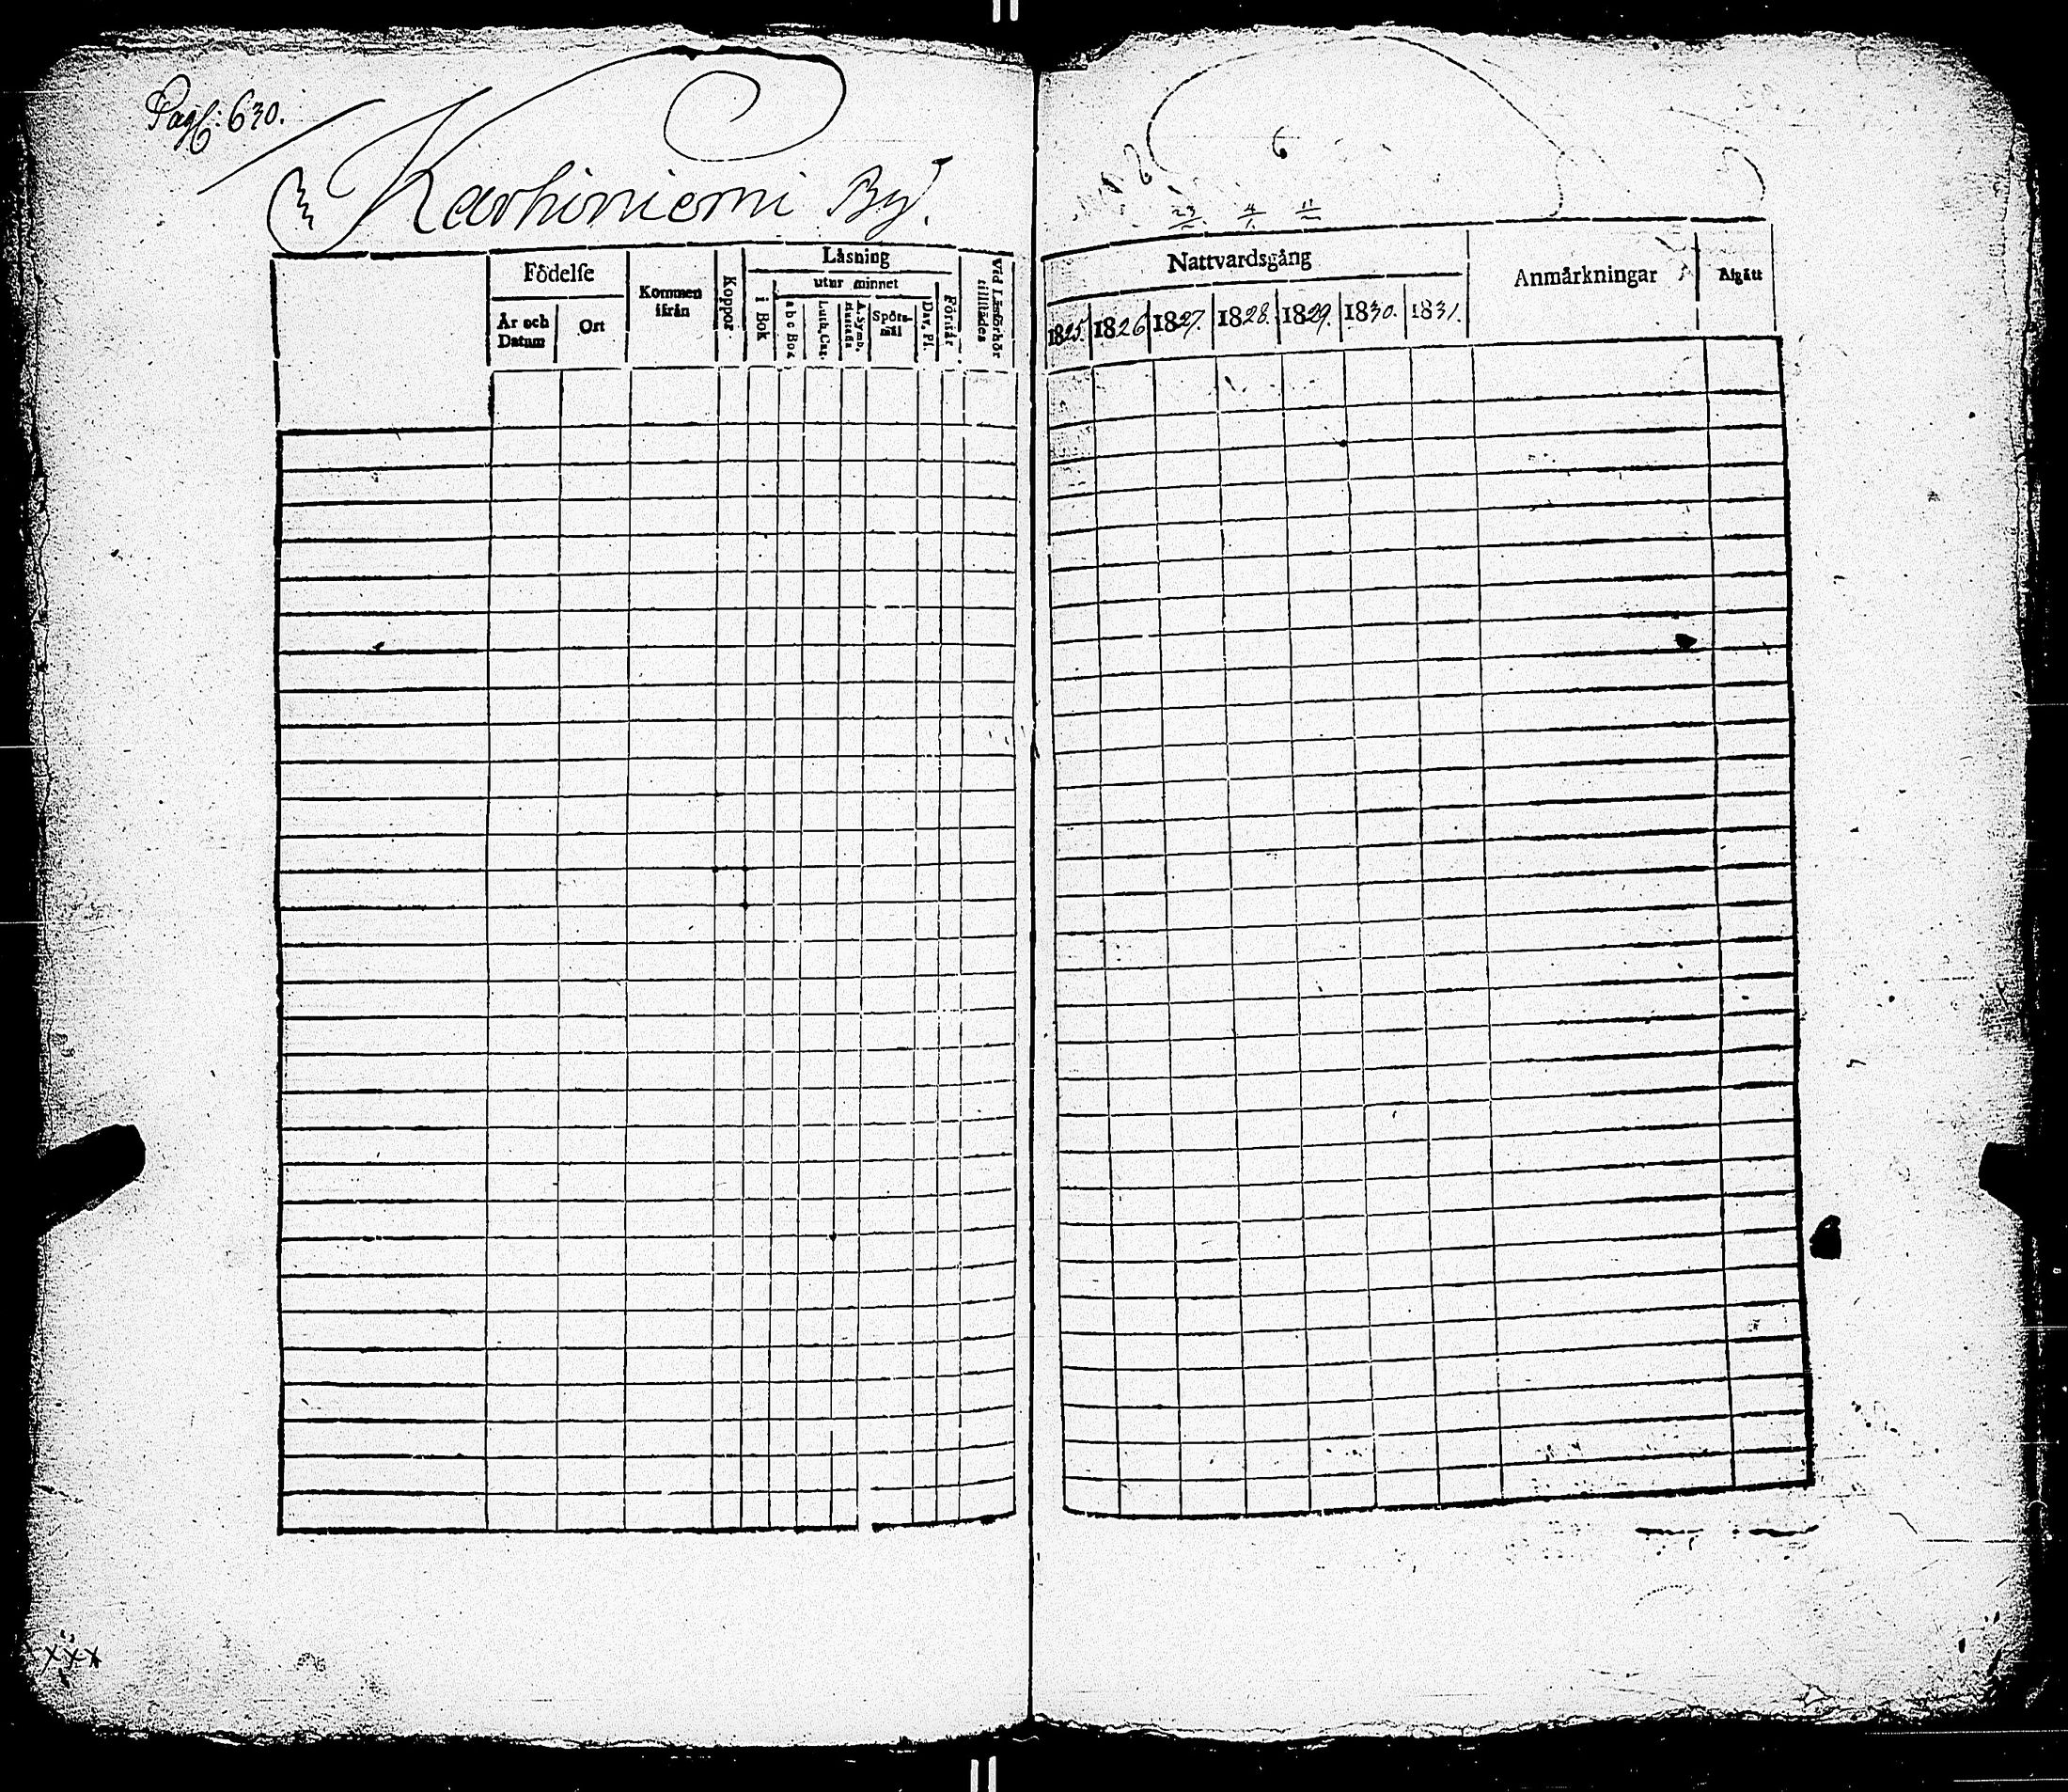 Pag: 630.
Karhiniemi By.
Födelse
År och Datum
Ort
Kommen ifrån
Koppor
Låsning
i Bok
utur minnet
a b c Bok
Luth. Cat.
A. Symb.
Spörs-mål
Dav. Ps.
Förstår
Vid Läsförhör tillstädes
23 4 11
Nattvardsgång
1825. 1826 1827. 1828. 1829. 1830. 1831.
Anmårkningar
Afgått
xxx